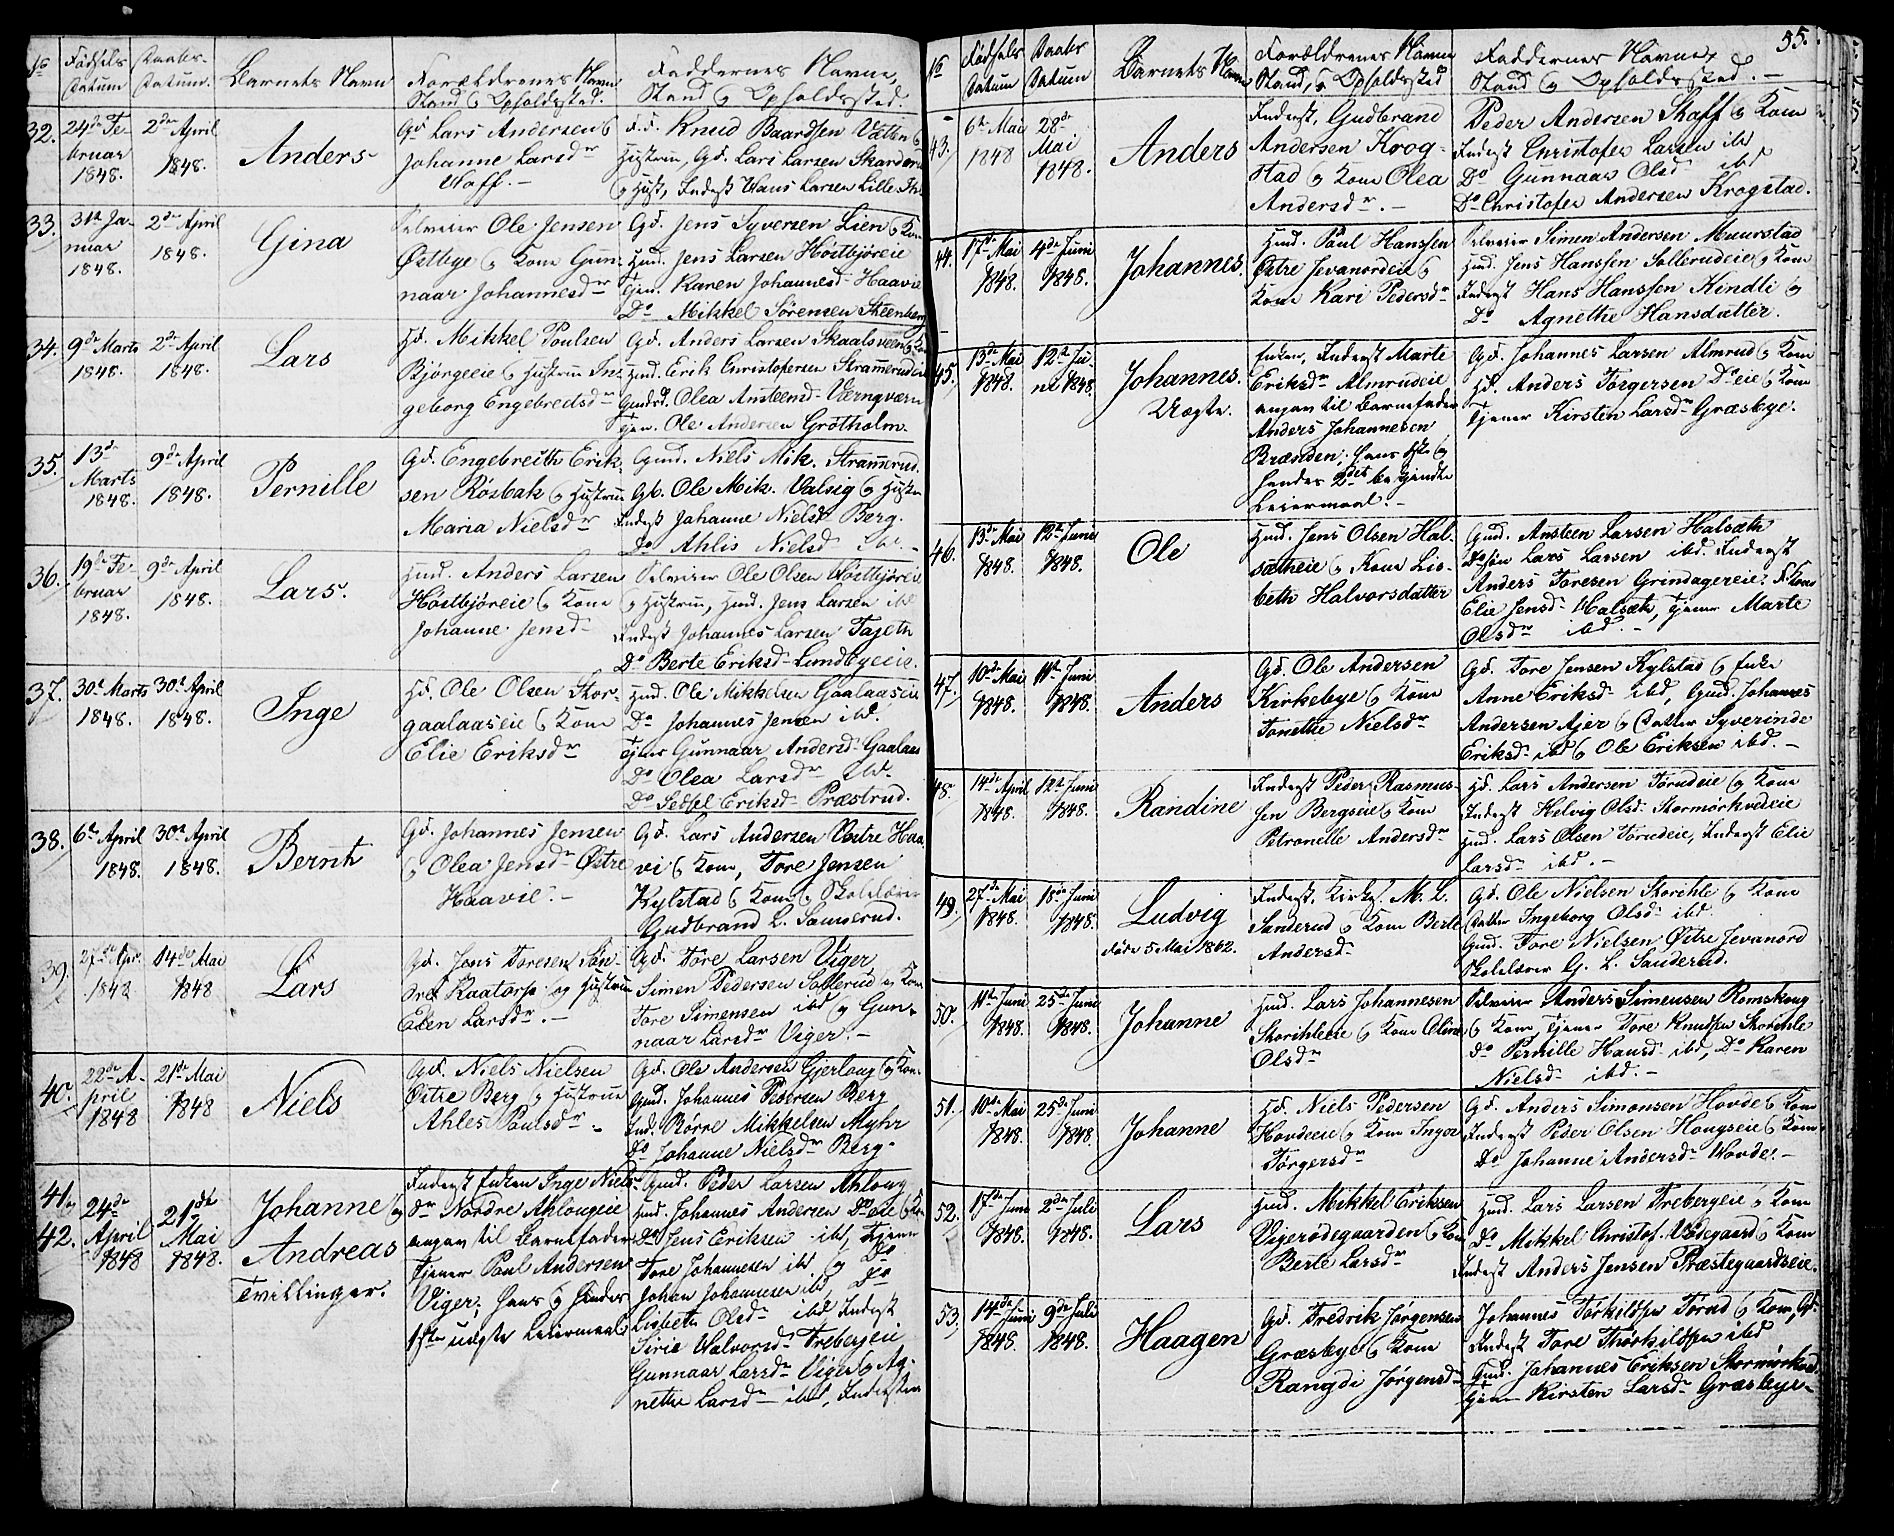 No Fødsels Datum
Daabs- Datum.
Barnets Navn
Forældrenes Navn
Stand og Opholdssted.
Faddernes Navne,
Stand og Opholdssted.
32.
24de Fe-
bruar
1848.
2den April
1848.
Anders
Gd. Lars Andersen og
Johanne Larsdr
Haff.
Knud Baardsen Vætten og
Hustru, Gd. Lars Larsen
og Hust, Inderst Hans Larsen Lille
33.
31te Ja-
nuar
1848.
2den April
1848.
Gina
Selveier Ole Jensen
Østbye og Kone Gun-
naar Johannesdr
Gd. Jens Syversen Lien og Kone
Hmd. Jens Larsen Høstbjöreie
Tjen. Karen Johannesd. Haavie
Do Mikkel Sørensen Steenberg
34.
9de Marts
1848.
2den April
1848.
Lars
Hd. Mikkel Poulsen
Bjørgeeie og Hustrue In-
geborg Engebredsdr
Gd. Anders Larsen Skaalsveen og Kone
Hmd. Erik Christofersen Strammerudeie
Olea Amsteensd.
Tjen. Ole Andersen Grötholm.
35.
13de
Marts
1848.
9de April
1848.
Pernille
Gd. Engebreth Erik-
sen Rösbak og Hustrue
Maria Nielsdr
Gmd. Niels Mik. Strammerud.
Gb. Ole Mik. Valsig og Hustru
Inderst Johanne Nielsd. Berg.
Do Ahlis Nielsd. ibd.
36.
19de Fe-
bruar
1848.
9de April
1848.
Lars.
Hmd. Anders Larsen
Høstbjöreie og Kone
Johanne Jensd.
Selveier Ole Olsen Høstbjöreie
og Hustrue, Hmd. Jens Larsen ibd
Inderst Johannes Larsen Tajeth
Do Berte Eriksd. Lundbyeeie.
37.
30te Marts
1848.
30te April
1848.
Inge
Hd. Ole Olsen Stor-
gaalaaseie og Kone
Elie Eriksdr
Hmd. Ole Mikkelsen Gaalaaseie
Do Johannes Jensen ibd.
Tjener Gunnaar Andersd. Gaalaas
Do Olea Larsdr ibd.
Do Sedsel Eriksd. Præstrud.
38.
6te April
1848.
30te April
1848.
Bernth
Gd. Johannes Jensen
og Olea Jensd. Østre
Haavie.
Gd. Lars Andersen Vestre Haa-
vi og Kone, Tore Jensen
Kylstad og Kone og Skolelærer
Gudbrand L. Sannerud.
39.
27de Apr.
1848
14de Mai
1848
Lars
Gd. Jens Toresen Søn-
dre Kaatorp og Hustrue
Elen Larsdr.
Gd. Tore Larsen Viger
Simen Pedersen Sollerud og Kone
Tore Simensen ibd og Gun-
naar Larsdr Viger.
40.
22de A-
pril
1848
21de Mai
1848
Niels
Gd. Niels Nielsen
Østre Berg og Hustrue
Ahles Paulsdr
Gd. Ole Andersen Gjerloug og Kone
Gmd. Johannes Pedersen Berg
Ind. Börre Mikkelsen Myhr
Do Johanne Nielsdr Berg.
41.
42.
24de
April
1848
21de
Mai
1848.
Johanne og
Andreas
Tvillinger.
Inderst Enken Inge Niels-
dr Nordre Ahlougeie
angav til Barnefader
Tjener Paul Andersen
Viger; hans og hendes
1ste uægte Leiermaal
Gmd. Peder Larsen Ahloug
Hmd. Johannes Andersen Do eie og Kone
Do Jens Eriksen ibd, Tjener
Tore Johannesen ibd og Do
Johan Johannesen ibd, Do
Lisbeth Olsd. ibd, Inderst
Sirie Halvorsd. Trebergeie
Gunnaar Larsdr Viger og Ag-
nethe Larsd. ibd, Inderster
55.
No Fødsels Datum
Daabs Datum
Barnets Navn
Forældrenes Navne
Stand, og Opholdssted
Faddernes Navne,
Stand og Opholdssted.
43.
6te Mai
1848
28de
Mai
1848.
Anders
Inderst, Gudbrand
Andersen Krog-
stad og Kone Olea
Andersdr.
Peder Andersen Skaff og Kone
Inderst Christofer Larsen ibd
Do Gunnaar Olsd. ibd
Do Christofer Andersen Krogstad.
44.
17de Mai
1848.
4de Juni
1848.
Johannes.
Hmd. Paul Hanssen
Østre Jevanordeie og
Kone Kari Pedersdr
Selveier Simen Andersen Muurstad
Hmd. Jens Hanssen Sollerudeie og Kone
Inderst Hans Hanssen Kindli og
Do Agnethe Hansdatter.
45.
13de Mai
1848.
12te Ju-
ni 1848.
Johannes.
Uægte.
Enken, Inderst Marte
Eriksdr Almrudeie
angav til Barnefader
Anders Johannesen
Brænden; hans 1ste og
hendes 2det begyndte
Leiermaal.
Gd. Johannes Larsen Almrud og Kone
Hd. Anders Torgersen Do eie og Kone
Tjener Kirsten Larsdr Græsbye.
46.
13de Mai
1848.
12te Juni
1848.
Ole
Hmd. Jens Olsen Hal-
sætheie og Kone Lis-
beth Halvorsdatter
Gmd. Ansteen Larsen Halsæth
Lars Larsen ibd. Inderst
Anders Toresen Grindagereie.
Elie Jensd. Halsæth, Tjener Marte
Olsdr ibd.
47.
10de Mai
1848.
11te Juni
1848.
Anders
Gd. Ole Andersen
Kirkebye og Kone
Tonethe Nielsdr
Gd. Tore Jensen Kylstad og Enke
Anne Eriksd. ibd, Gmd. Johannes
Andersen Ajer og Datter Syverinde
Eriksd. ibd og Ole Eriksen ibd.
48.
14de April
1848.
12te Juni
1848.
Randine
Inderst Peder Rasmus-
sen Bergseie og Kone
Petronelle Andersdr
Hd. Lars Andersen Torudeie og Kone
Inderst Helvig Olsd. Stormörkvedeie
Hmd. Lars Olsen Torudeie, Inderst Elie
Larsd. ibd.
49.
27de Mai
1848.
18de Juni
1848.
Ludvig
døde 5 Mai 1862.
Inderst, Kirks. M. L.
Sanderud og Kone Berte
Andersd.
Gd. Ole Nielsen Skorihle og Kone
Datter Ingeborg Olsd. ibd.
Gmd. Tore Nielsen Østre Jevanord
Skolelærer G. L. Sanderud.
50.
11te Juni
1848.
25de Juni
1848.
Johanne
Hmd. Lars Johannesen
Skorihleeie og Kone Oline
Olsdr
Selveier Anders Simensen Romskoug
og Kone, Tjener Tore Knudsen Skorihle
Do Pernille Hansd. ibd, Do Karen
Nielsd. ibd.
51.
10de Mai
1848.
25de Juni
1848.
Johanne
Hd. Niels Pedersen
Hovdeeie og Kone Inger
Torgersdr
Gd. Anders Simonsen Hovde og Kone
Inderst Peder Olsen Hougseie og Kone
Do Johanne Andersd. Hovde.
52.
17de Juni
1848.
2den Juli
1848.
Lars
Hmd. Mikkel Eriksen
Vigerødegaarden og Kone
Berte Larsdr
Hmd. Lars Larsen Trebergeie og Kone
Do Mikkel Christof. Ødegaard og Kone
Inderst Anders Jensen Præstegaardseie.
53.
14de
Juni
1848.
9de Juli
1848.
Haagen
Gd. Fredrik Jørgensen
Græsbye og Kone
Rangdi Jørgensd.
Johannes Torkildsen Torud og Kone, Gd.
Inderst Tore Thorkildsen ibd
Gmd. Johannes Eriksen Stormörkved
Tjener Kirsten Larsdr Græsbye.